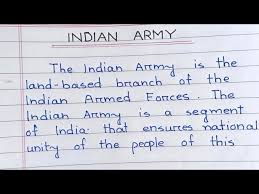 INDIAN ARMY
The Indian Army is the
land-based branch of the
Indian Armed Forces. The
Indian Army is a segment
of India that ensures national
unity of the people of this